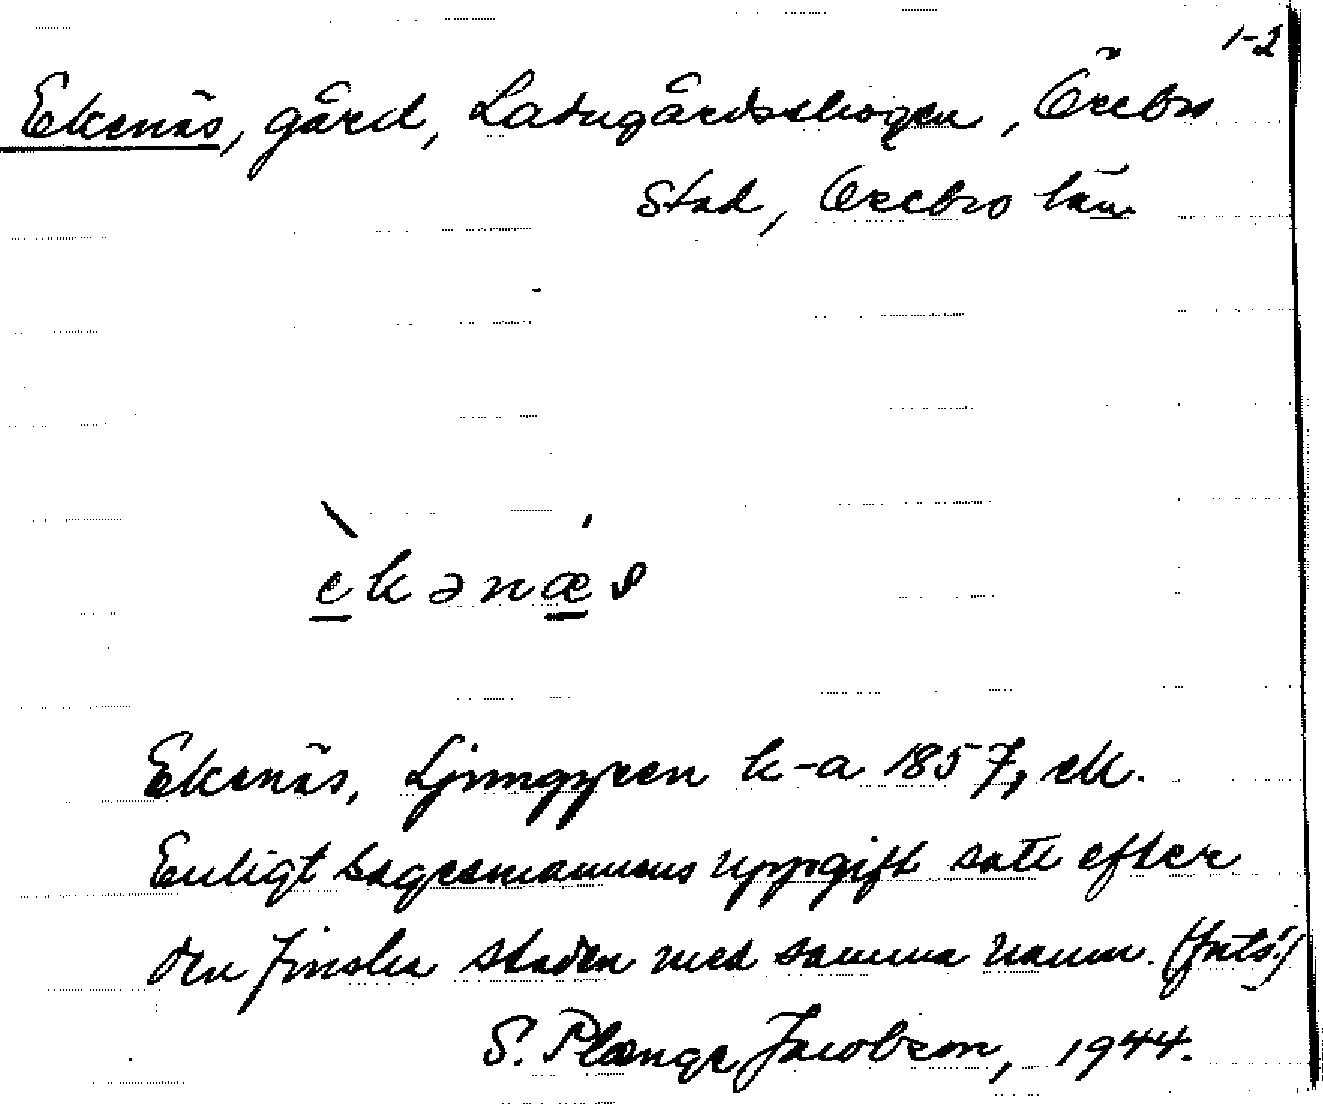 1-2
Ekenäs, gård, Ladugårdsskogen, Örebro
stad, Örebro län
èkənæ´s
Ekenäs, Ljunggren k-a 1857, ek.
Enligt sagesmannens uppgift satt efter
den finska staden med samma namn.
S. Plænge Jacobson, 1944.